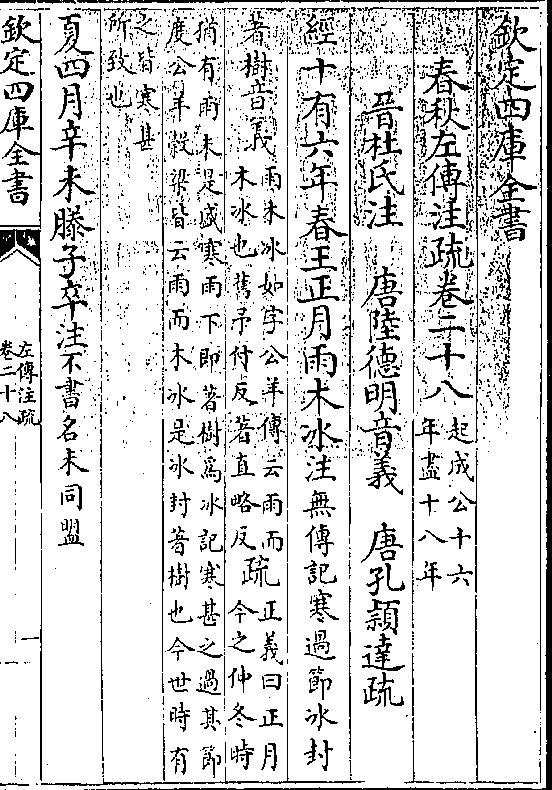 欽定四庫全書
春秋左傳注疏卷二十八
起成公十六
年盡十八年
晉杜氏注　唐陸德明音義　唐孔穎達疏
經十有六年春王正月雨木冰注無傳記寒過節冰封
著樹音義
雨木冰如字公羊傳云雨而
木冰也舊于付反著直略反
疏
正義曰正月
今之仲冬時
猶有雨未是盛寒雨下即著樹爲冰記寒甚之過其節
度公羊穀梁皆云雨而木冰是冰封著樹也今世時有
之皆寒甚
所致也
夏四月辛未滕子卒注不書名未同盟
欽定四庫全書
左傳注疏
卷二十八
一